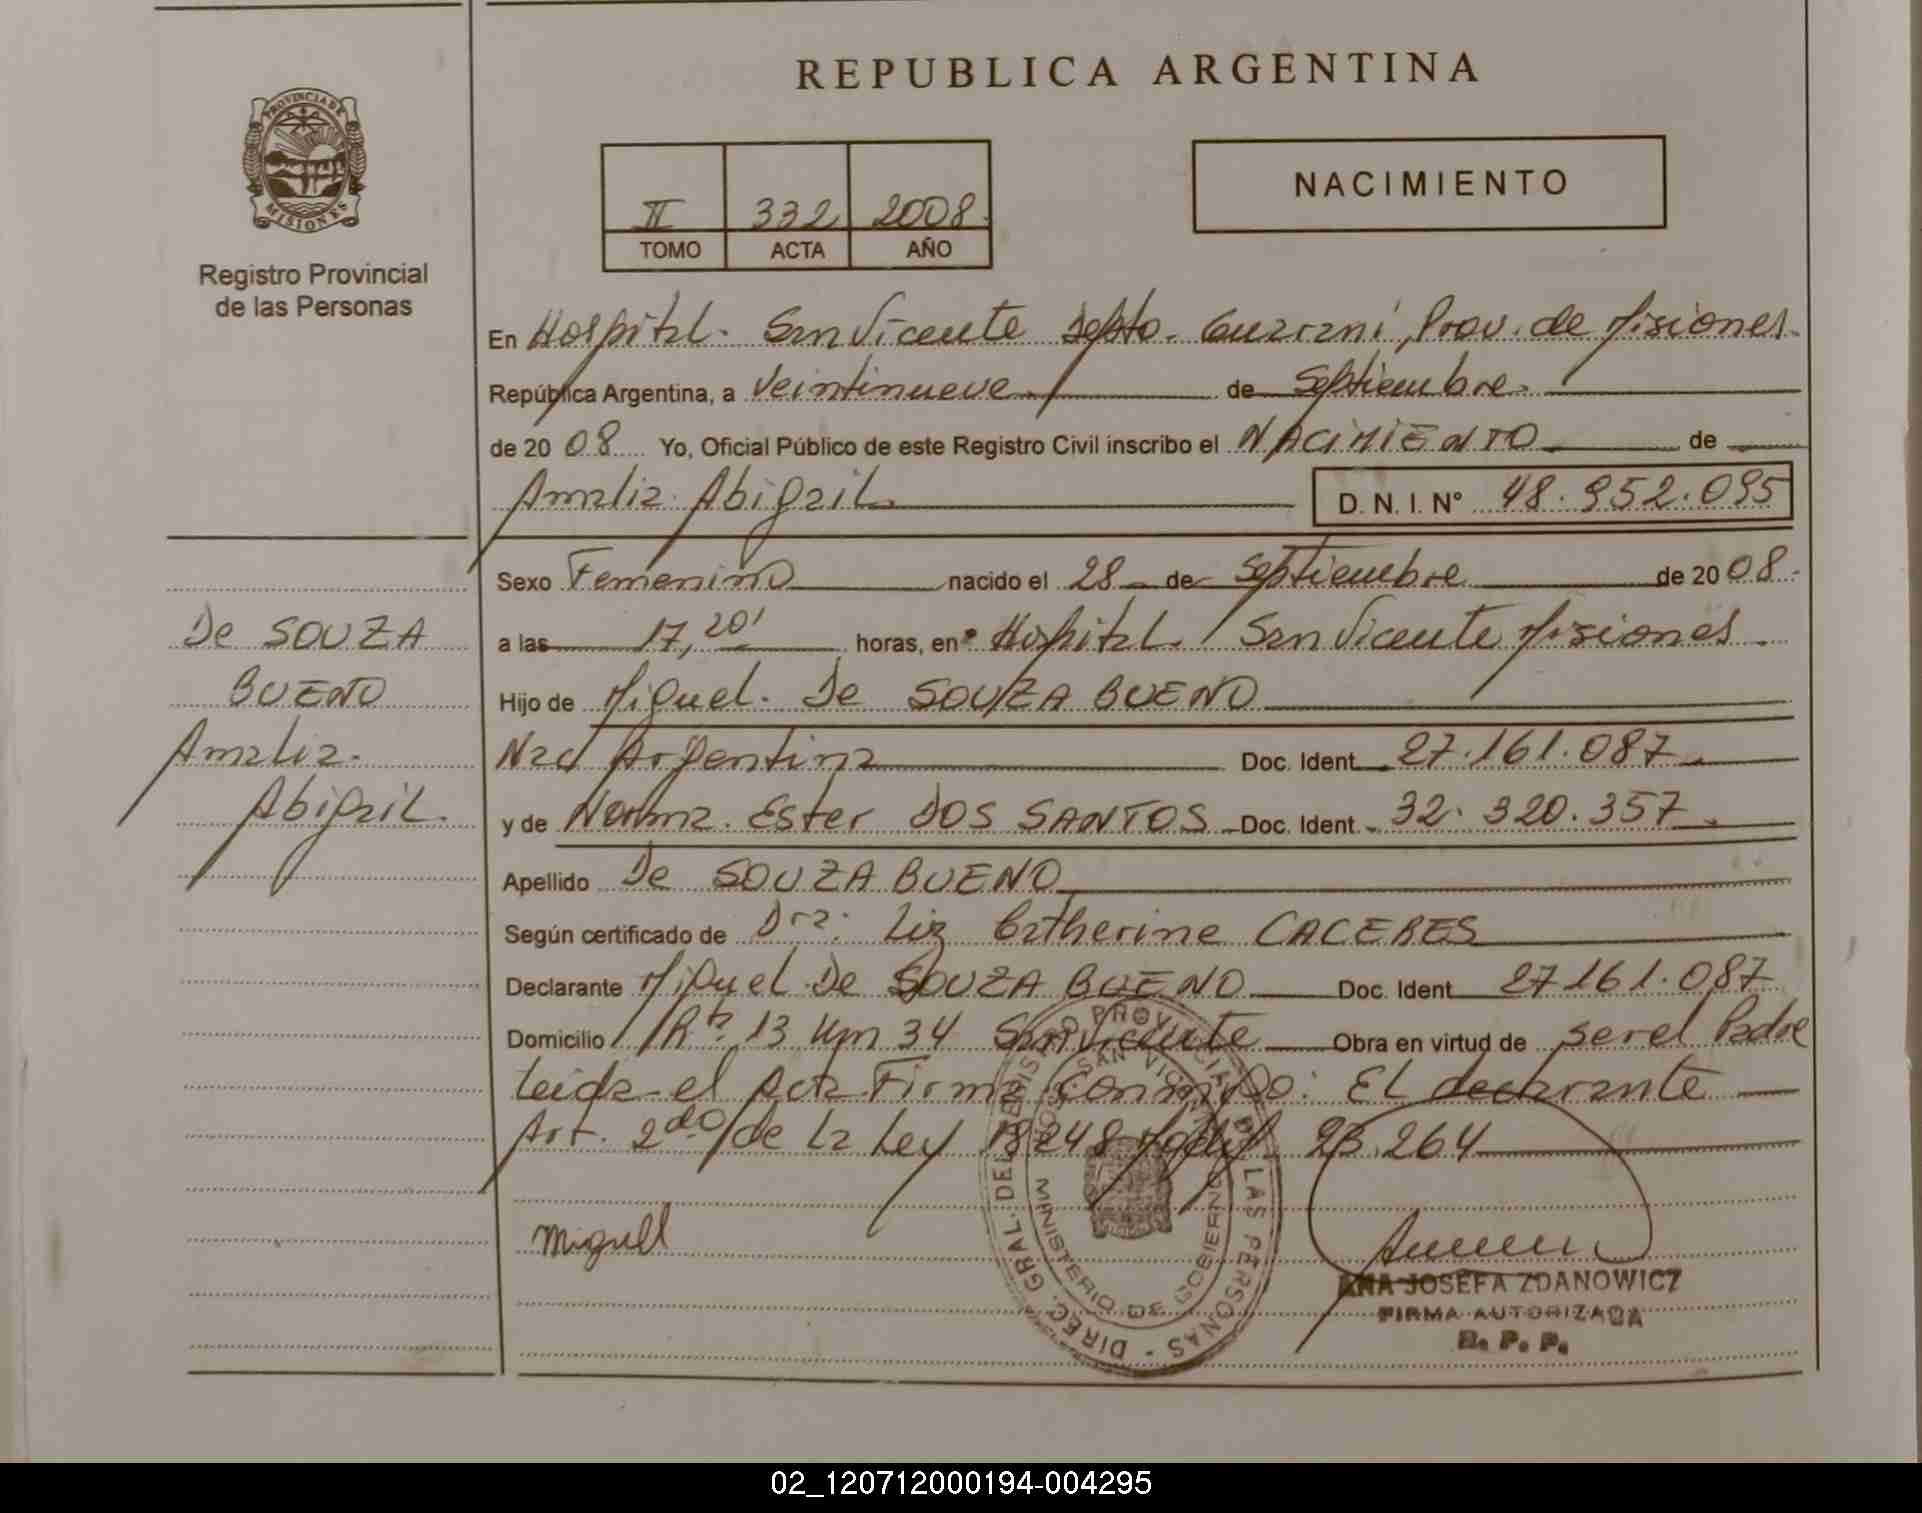 REPUBLICA ARGENTINA
PROVINCIA DE MISIONES
Registro Provincial
de las Personas
II 332 2008
TOMO ACTA AÑO
NACIMIENTO
En Hospital. San Vicente Depto. Guarani, Prov. de Misiones.
República Argentina, a Veintinueve de Septiembre.
de 2008 Yo, Oficial Público de este Registro Civil inscribo el NACIMIENTO de
Amalia. Abigail D. N. I. N° 48.952.095
Sexo Femenino nacido el 28 de Septiembre de 2008.
a las 17,20' horas, en Hospital. San Vicente Misiones.
Hijo de Miguel. De SOUZA BUENO
Nac/ Argentina Doc. Ident. 27.161.087
y de Norma. Ester DOS SANTOS Doc. Ident. 32.320.357
Apellido De SOUZA BUENO
Según certificado de Dra. Liz Catherine CACERES
Declarante Miguel. De SOUZA BUENO Doc. Ident. 27161.087
Domicilio Rta 13 Km 34 San Vicente Obra en virtud de ser el Padre
Leida el Acta Firma Conmigo: El declarante
Art. 2do de La Ley 18248 Modif. 23.264
De SOUZA
BUENO
Amalia.
Abigail.
Miguel
DIREC. GRAL. DEL REGISTRO PROVINCIAL DE LAS PERSONAS
MINISTERIO DE GOBIERNO
ANA JOSEFA ZDANOWICZ
FIRMA AUTORIZADA
R. P. P.
02_120712000194-004295